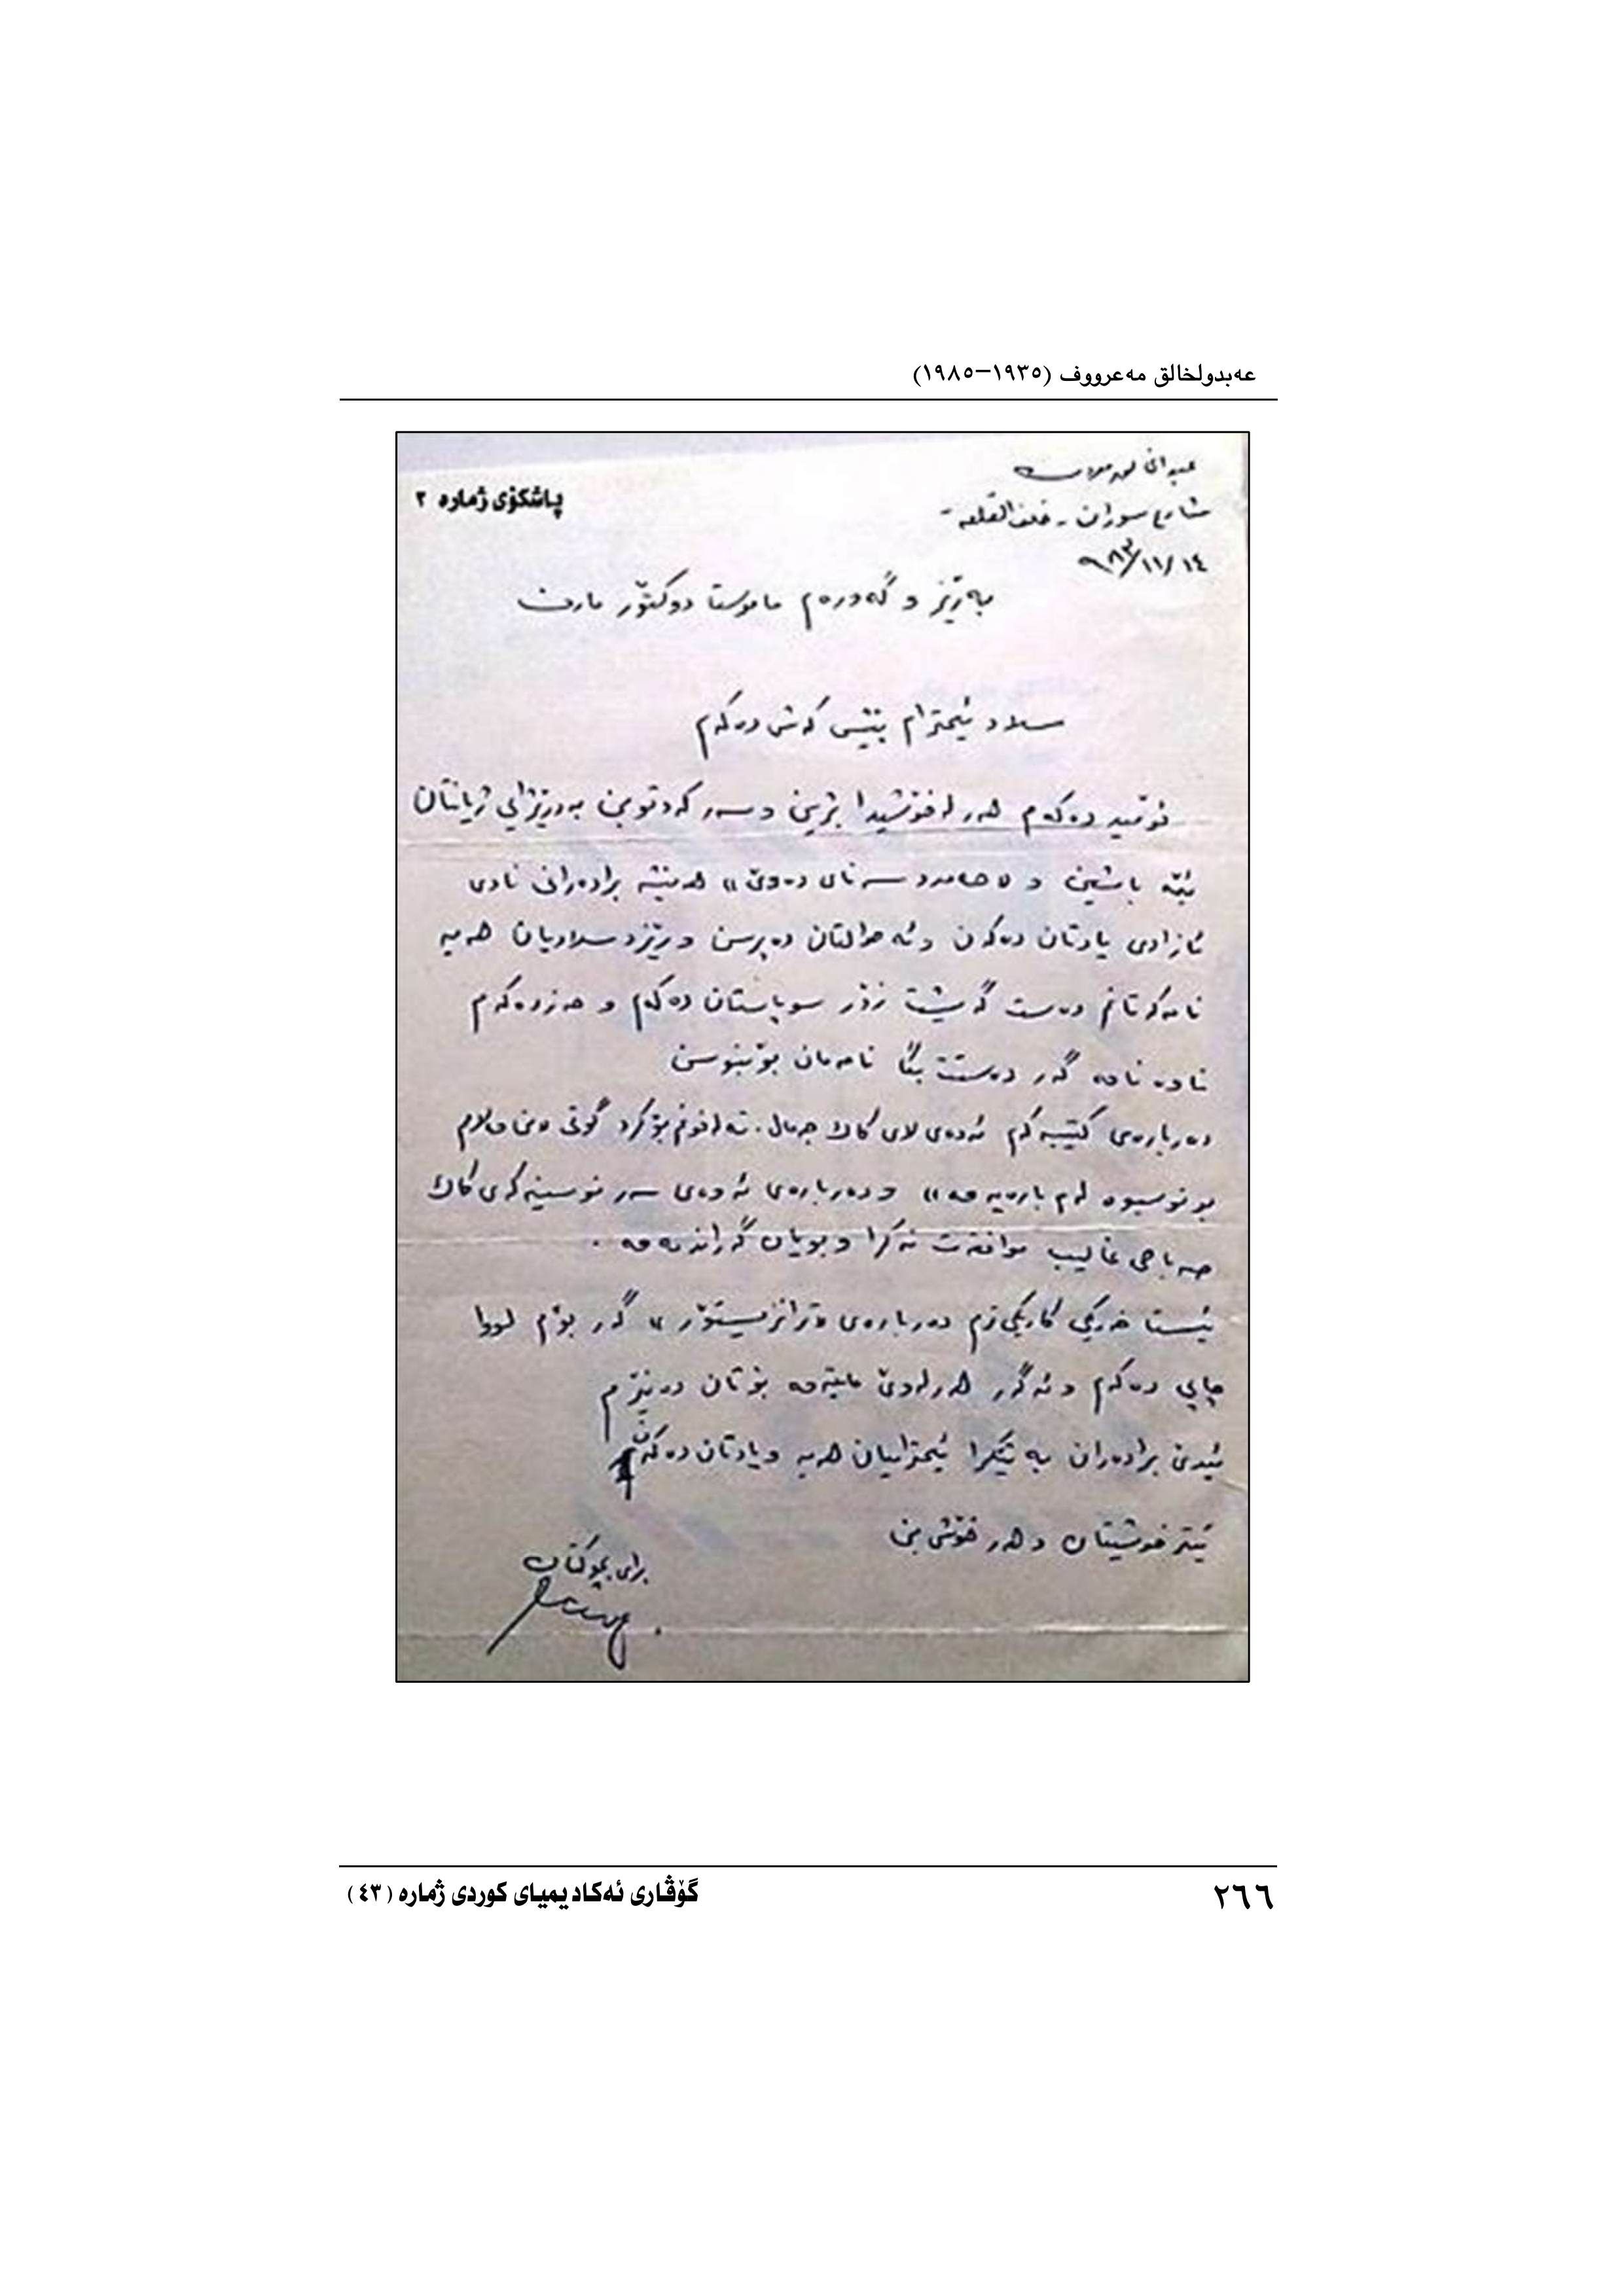 عەبدولخالق مەعرووف (١٩٣٥–١٩٨٥)
پاشکۆی ژمارە ٢
شارع سوران - خلف القلعة -
٩٨٣/١١/١٤
بەڕێز و گەورەم ماموستا دوکتۆر مارف
سلاو ئیحترام پێشکەش دەکەم
ئومێد دەکەم هەر لە خۆشیدا بژین و سەرکەوتوبن بەدرێژایی ژیانتان
ئێمە باشین و هەمیشە برادەرانی نادی
ئازادی یادتان دەکەن و ئەحوالتان دەپرسن و ڕێز و سلاویان هەیە
نامەکەتانم دەست گەیشت زۆر سوپاستان دەکەم و حەزدەکەم
ناوە ناوە گەر دەستت بگا نامەمان بۆ بنوسن
دەربارەی کتێبەکەم ئەوەی لای کاک جەمال. تەلەفونم بۆکرد گوتی وەلام
بو نوسیوە لەم بارەیەوە» و دەربارەی ئەوەی سەر نوسینەکەی کاک
صەباحی غالیب موافەقەت نەکرا و بویان گەراندمەوە .
ئیستا خەریکی کاریکی ترم دەربارەی «ترانزیستۆر» گەر بۆم لووا
چاپی دەکەم و ئەگەر هەر لەوێ مایتەوە بۆتان دەنێرم
ئیدی برادەران بە تێکرا ئیحترامیان هەیە و یادتان دەکەن
ئیتر خوشیتان و هەر خۆش بن
برای بچوکتان
٢٦٦
گۆڤاری ئەکادیمیای کوردی ژمارە (٤٣)